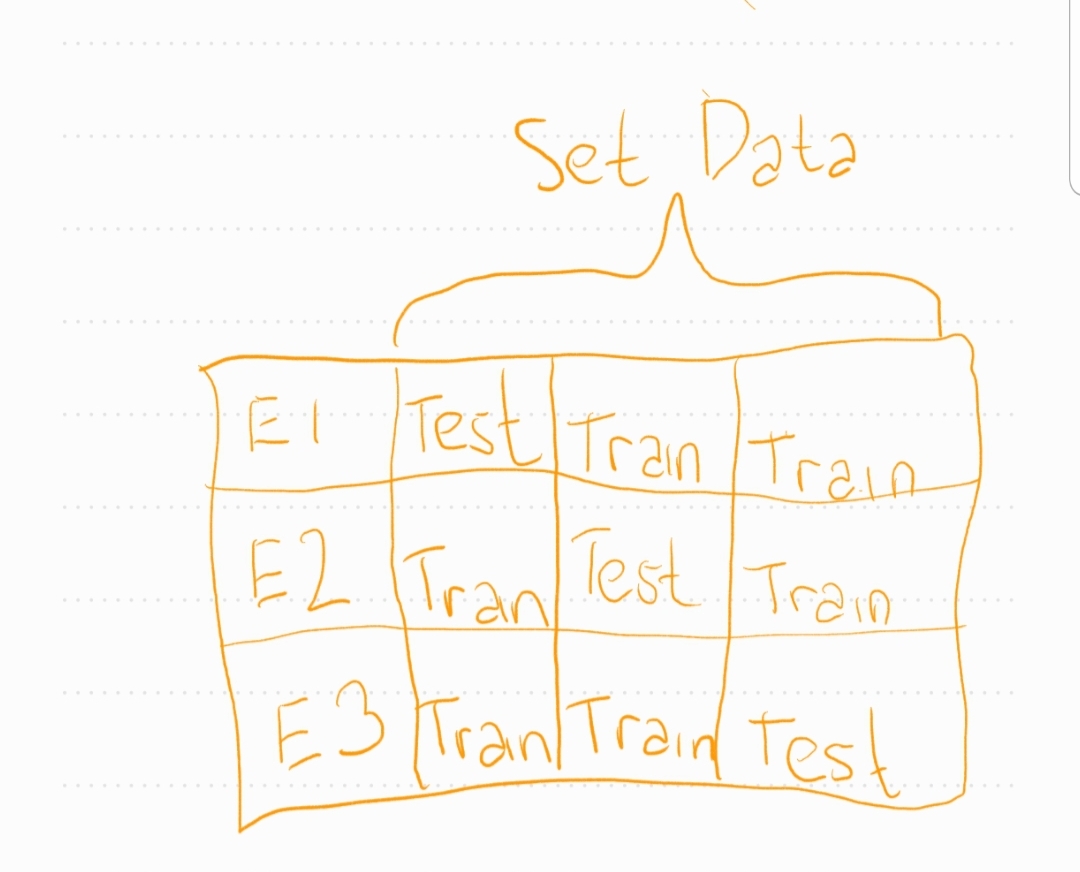 Set Data
E1 Test Train Train
E2 Tran Test Train
E3 Tran Train Test